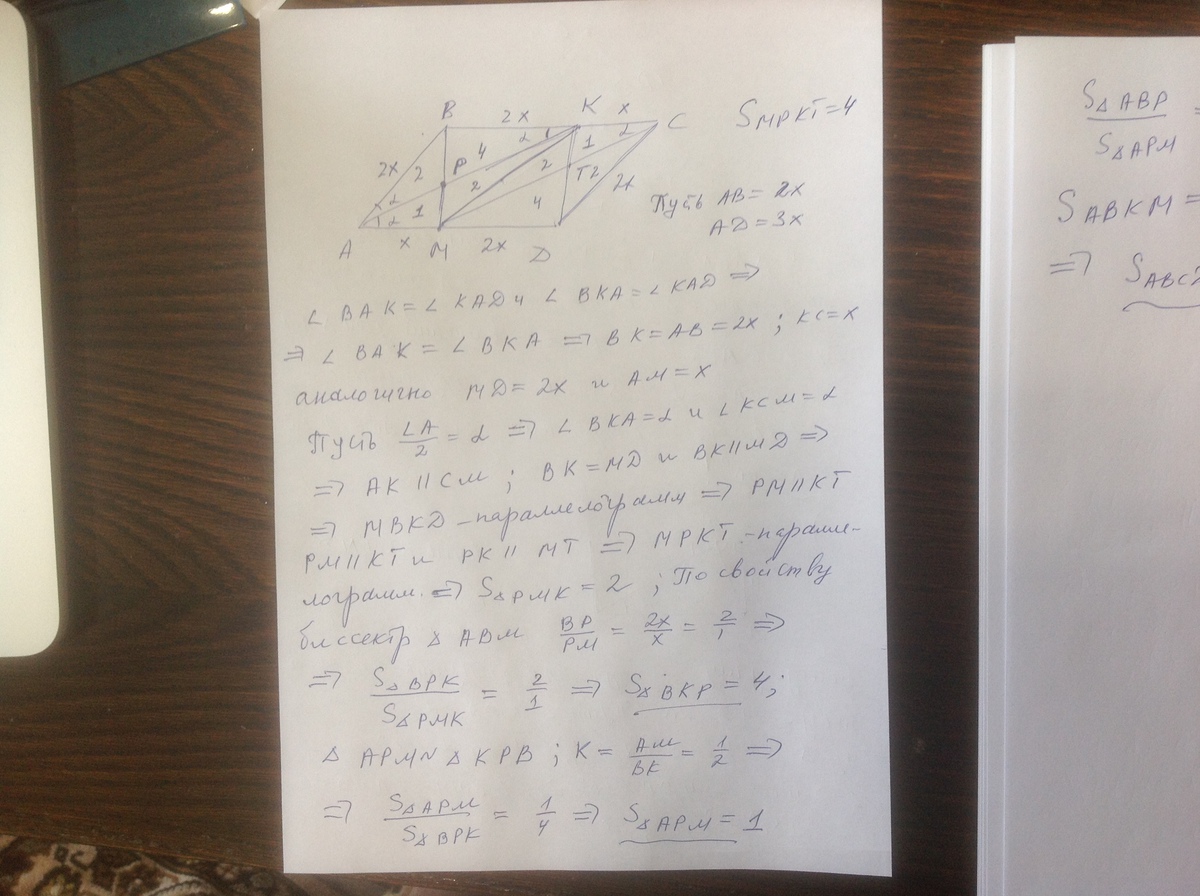 B 2x K x C
S MPKT = 4
2x 2 P 4 α 1 1 α
α 2 2 T 2 2x
α 1 4
A x M 2x D
Пусть AB = 2x
AD = 3x
∠ BAK = ∠ KAD и ∠ BKA = ∠ KAD ⇒
⇒ ∠ BAK = ∠ BKA ⇒ BK = AB = 2x ; KC = x
аналогично MD = 2x и AM = x
Пусть ∠A/2 = α ⇒ ∠ BKA = α и ∠ KCM = α
⇒ AK || CM ; BK = MD и BK || MD ⇒
⇒ MBKD - параллелограмм ⇒ PM || KT
PM || KT и PK || MT ⇒ MPKT - паралле-
лограмм. ⇒ S△PMK = 2 ; По свойству
биссектр △ ABM BP/PM = 2x/x = 2/1 ⇒
⇒ S△BPK/S△PMK = 2/1 ⇒ S△BKP = 4;
△ APM ~ △ KPB ; K = AM/BK = 1/2 ⇒
⇒ S△APM/S△BPK = 1/4 ⇒ S△APM = 1
S△ABP/S△APM =
S ABKM =
⇒ S ABC